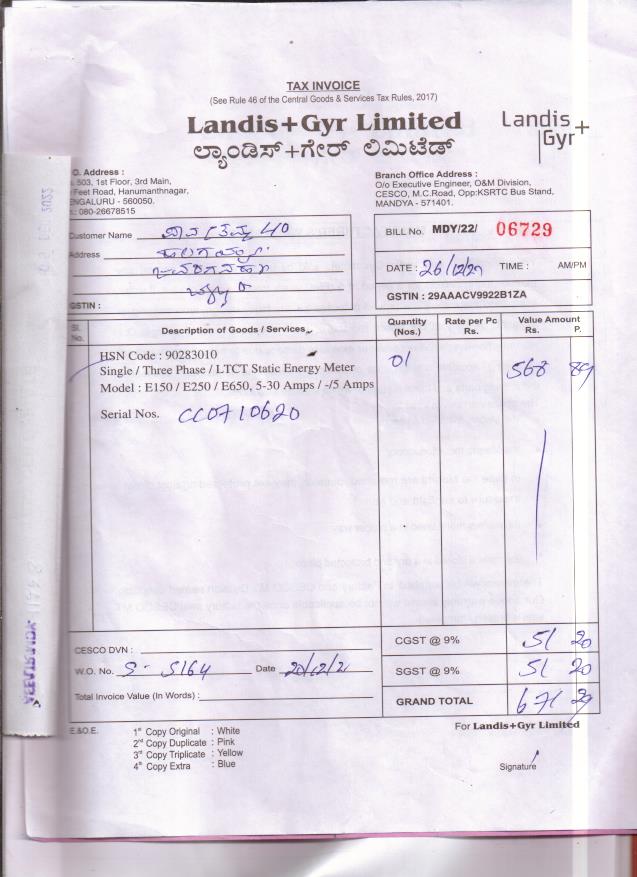 TAX INVOICE
(See Rule 46 of the Central Goods & Services Tax Rules, 2017)
Landis+Gyr Limited
ಲ್ಯಾಂಡಿಸ್+ಗೇರ್ ಲಿಮಿಟೆಡ್
Landis+
Gyr
O. Address :
503, 1st Floor, 3rd Main,
Feet Road, Hanumanthnagar,
ENGALURU - 560050.
: 080-26678515
Branch Office Address :
O/o Executive Engineer, O&M Division,
CESCO, M.C.Road, Opp:KSRTC Bus Stand,
MANDYA - 571401.
Customer Name
Address
GSTIN :
BILL No. MDY/22/ 06729
DATE : 26/12/21 TIME : AM/PM
GSTIN : 29AAACV9922B1ZA
Sl. No. Description of Goods / Services Quantity (Nos.) Rate per Pc Rs. Value Amount Rs. P.
HSN Code : 90283010 01 568 89
Single / Three Phase / LTCT Static Energy Meter
Model : E150 / E250 / E650, 5-30 Amps / -/5 Amps
Serial Nos. CC0710620
CESCO DVN :
W.O. No. S-5164 Date 20/12/21
Total Invoice Value (In Words) :
CGST @ 9% 51 20
SGST @ 9% 51 20
GRAND TOTAL 671 29
E.&O.E.
1st Copy Original : White
2nd Copy Duplicate : Pink
3rd Copy Triplicate : Yellow
4th Copy Extra : Blue
For Landis+Gyr Limited
Signature